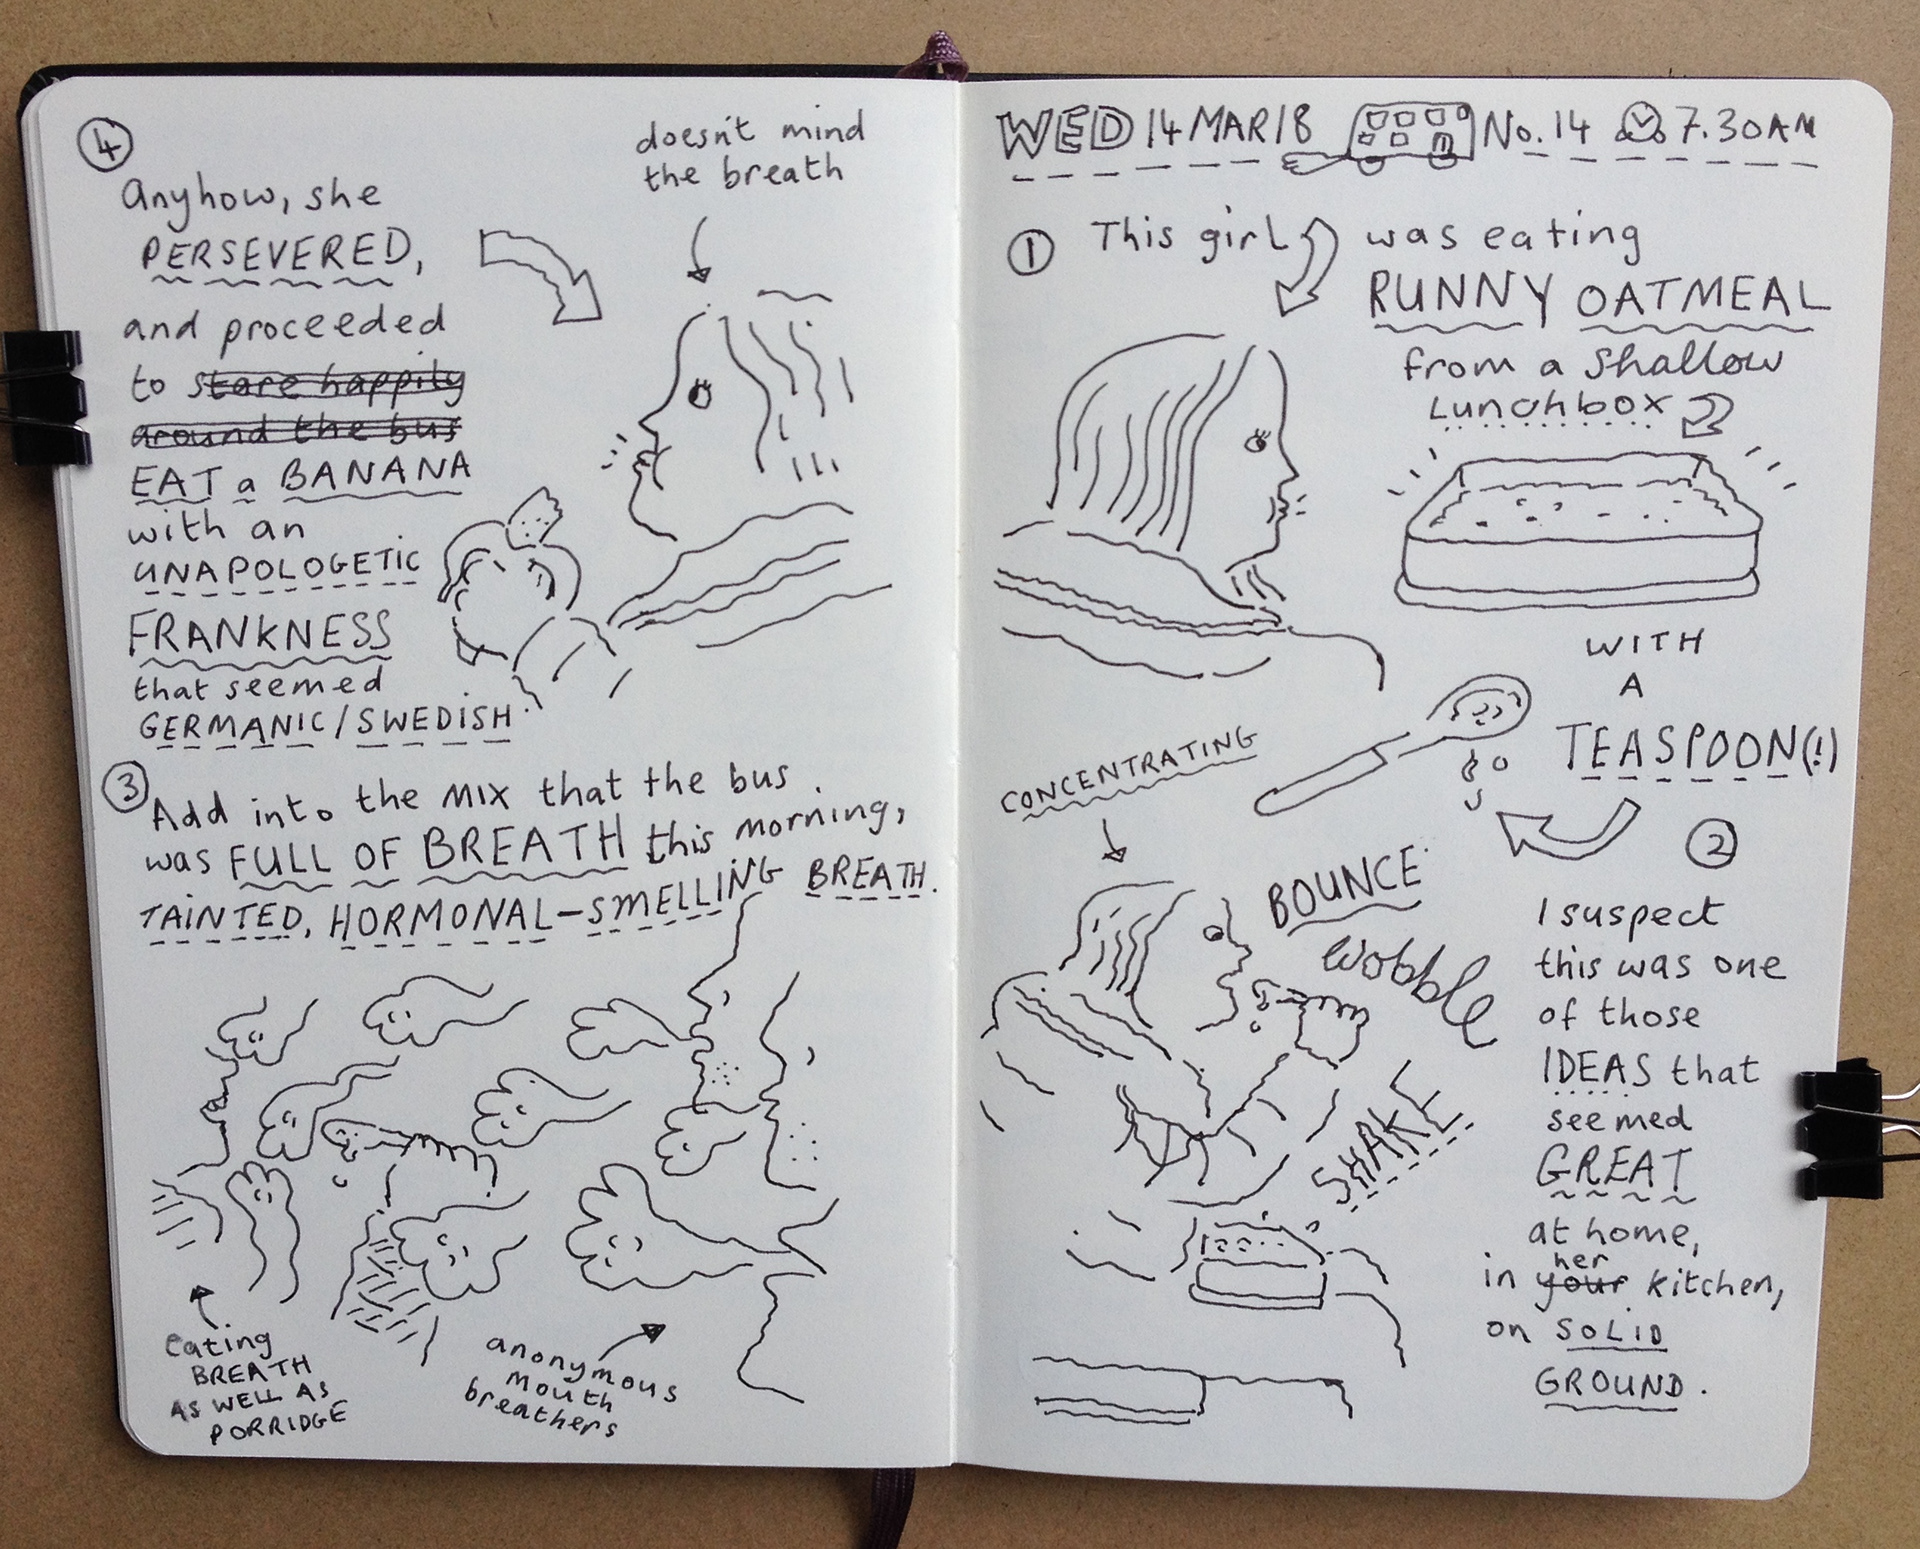 WED 14 MAR 18 No. 14 7.30AM
① This girl was eating
RUNNY OATMEAL
from a shallow
Lunchbox
WITH
A
TEASPOON(!)
CONCENTRATING
BOUNCE
wobble
SHAKE
②
I suspect
this was one
of those
IDEAS that
seemed
GREAT
at home,
her
in your kitchen,
on SOLID
GROUND.
③ Add into the MIX that the bus
was FULL OF BREATH this morning,
TAINTED, HORMONAL-SMELLING BREATH.
eating
BREATH
AS WELL AS
PORRIDGE
anonymous
mouth
breathers
④
Anyhow, she
PERSEVERED,
and proceeded
to stare happily
around the bus
EAT a BANANA
with an
UNAPOLOGETIC
FRANKNESS
that seemed
GERMANIC/SWEDISH.
doesn't mind
the breath